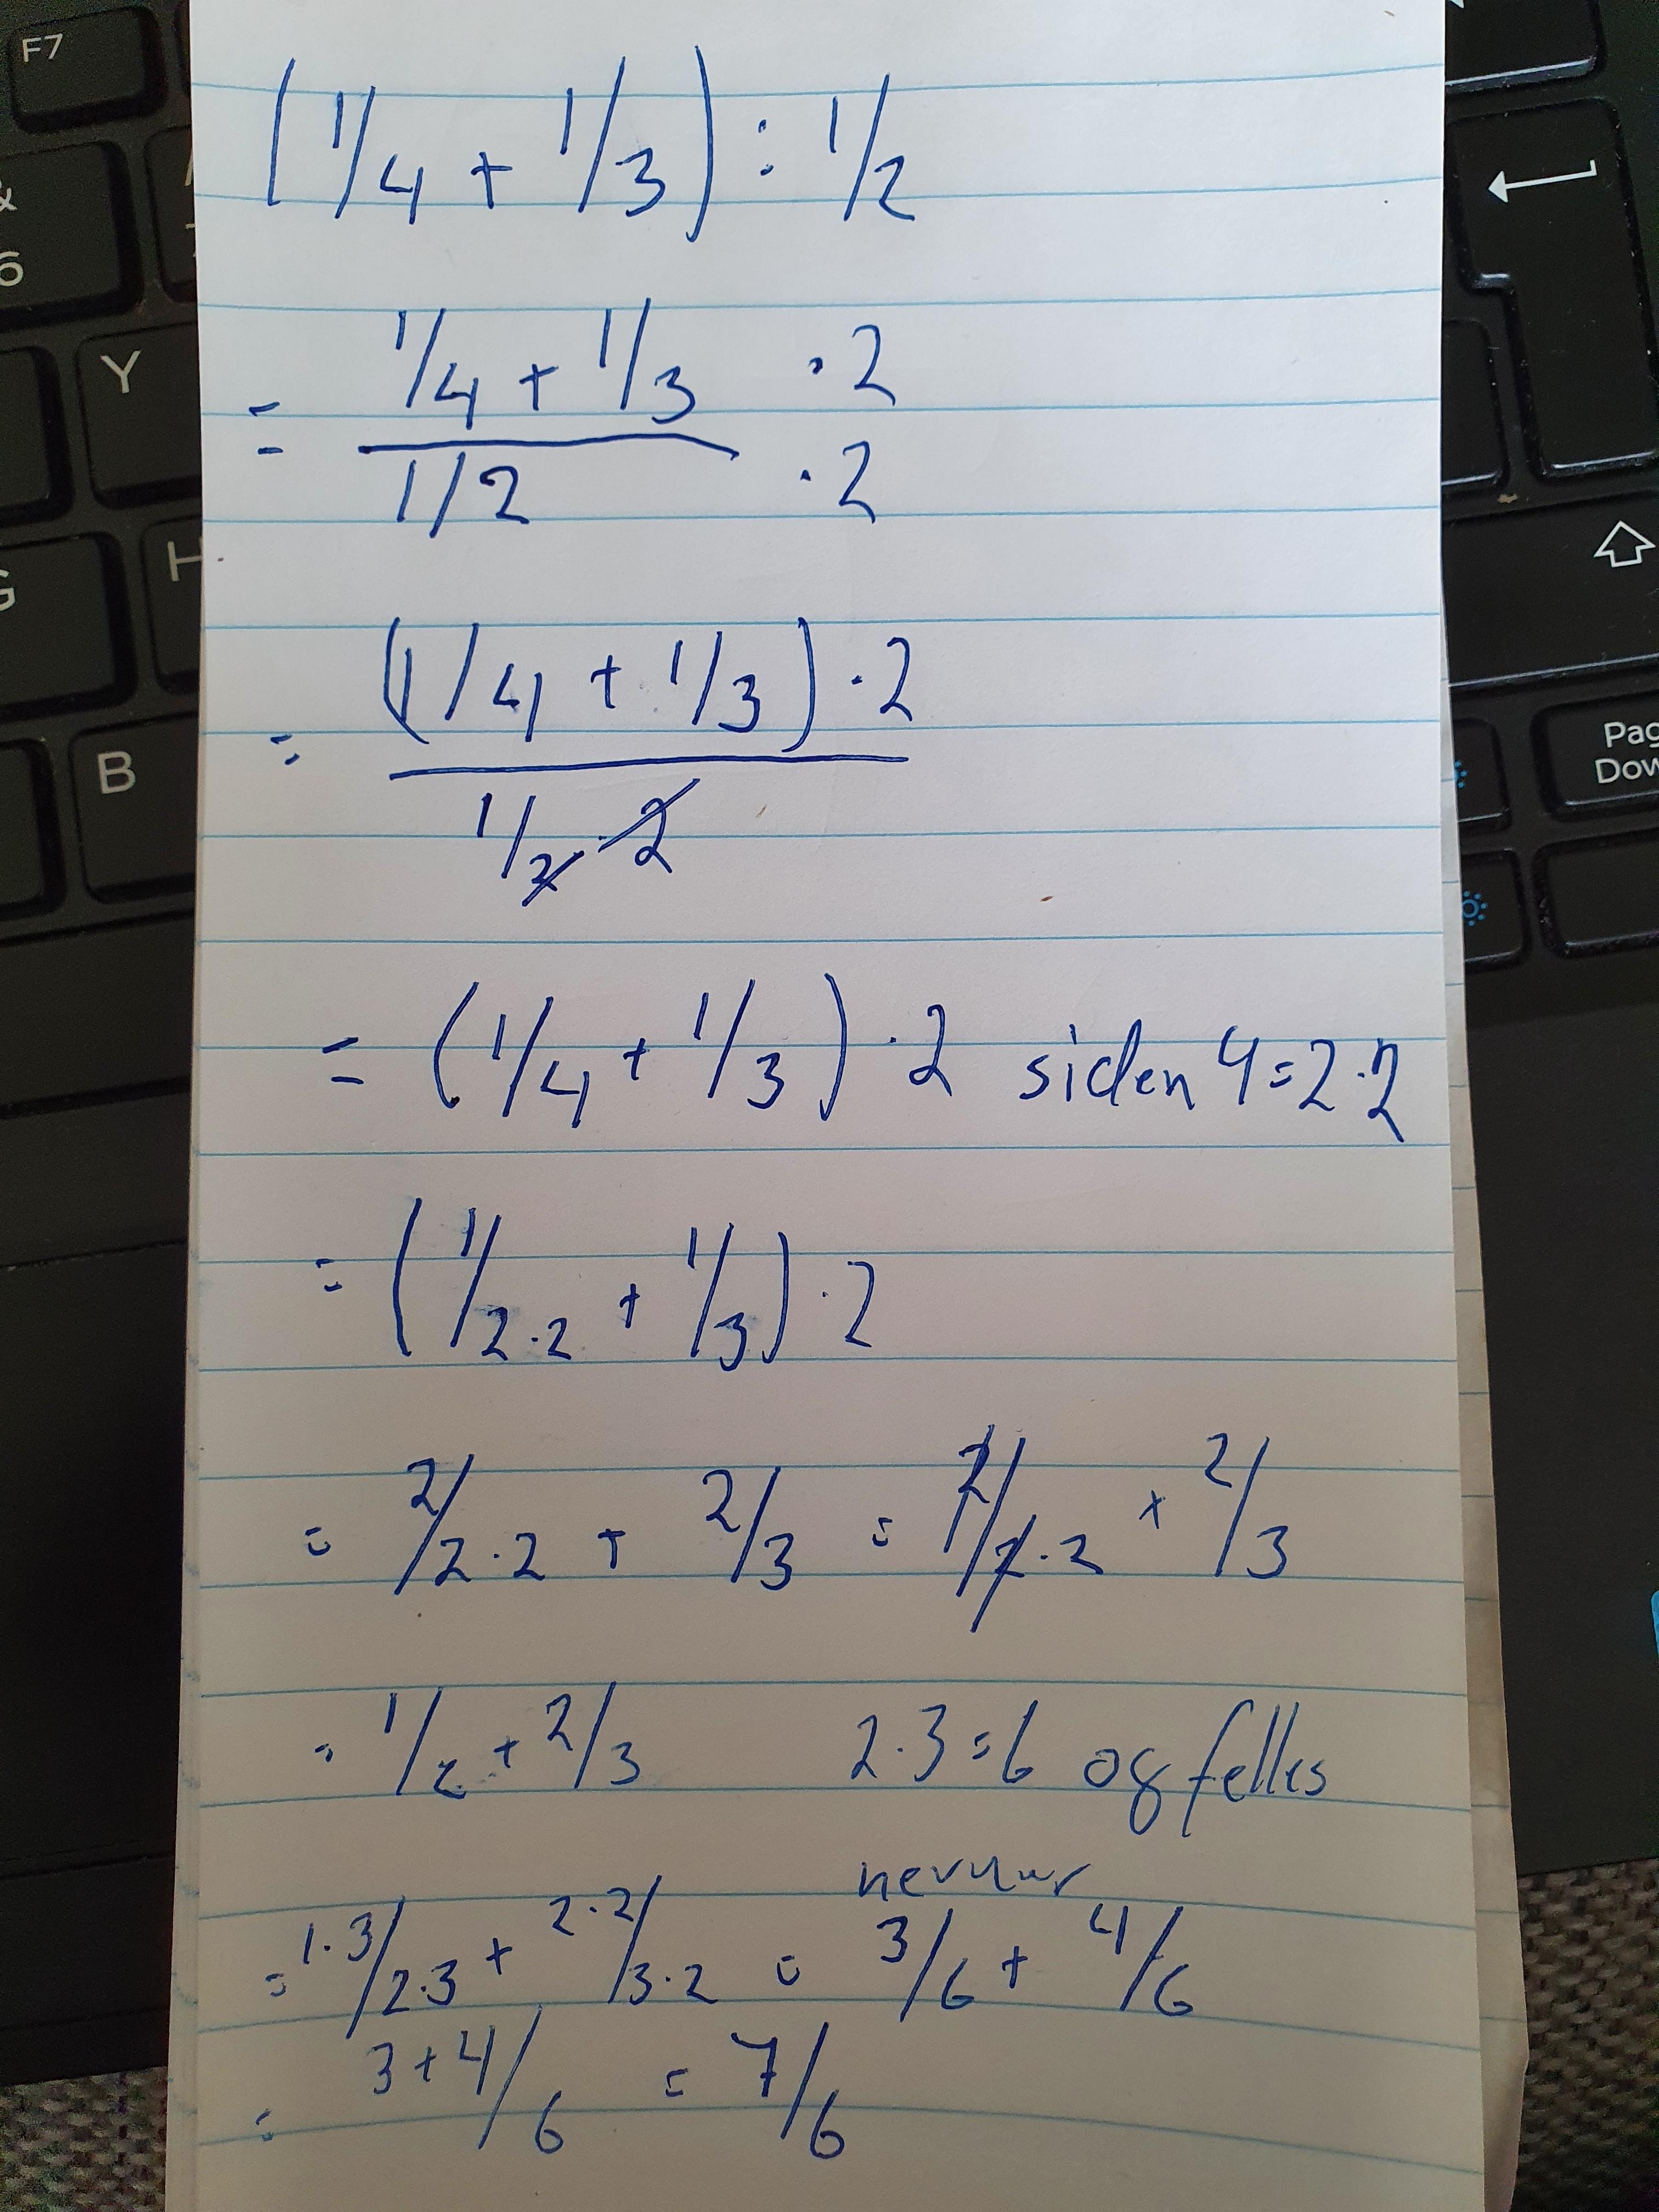 F7
&
6
Y
G
H
B
Pag
Dow
(1/4 + 1/3) : 1/2
= 1/4 + 1/3 · 2
1/2 · 2
= (1/4 + 1/3) · 2
1/2 · 2
= (1/4 + 1/3) · 2 siden 4 = 2·2
= (1/2·2 + 1/3) · 2
= 2/2·2 + 2/3 = 2/2·2 + 2/3
= 1/2 + 2/3 2·3=6 og felles
nevner
= 1·3/2·3 + 2·2/3·2 = 3/6 + 4/6
= 3+4/6 = 7/6